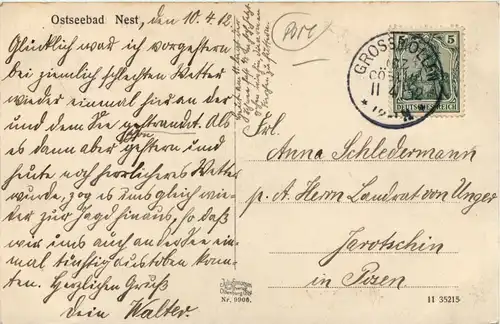 Ostseebad Nest, den 10.4.12.
Glücklich war ich vorgestern
bei ziemlich schlechten Wetter
wieder einmal hier an der
und dem See gestrandet. Als
es dann aber gestern und
schon
heute noch herrlicheres Wetter
wurde, zog es uns gleich wie-
der zur Jagd hinaus, so daß
wir uns auch an der See ein-
mal tüchtig austoben konn-
ten. Herzlichen Gruß
Dein Walter.
GROSSMÖLLEN
5 5
DEUTSCHES REICH
Frl.
Anna Schledermann
p. A. Herrn Landrat von Unger
Jarotschin
in Posen
Nr. 9906.
II 35215